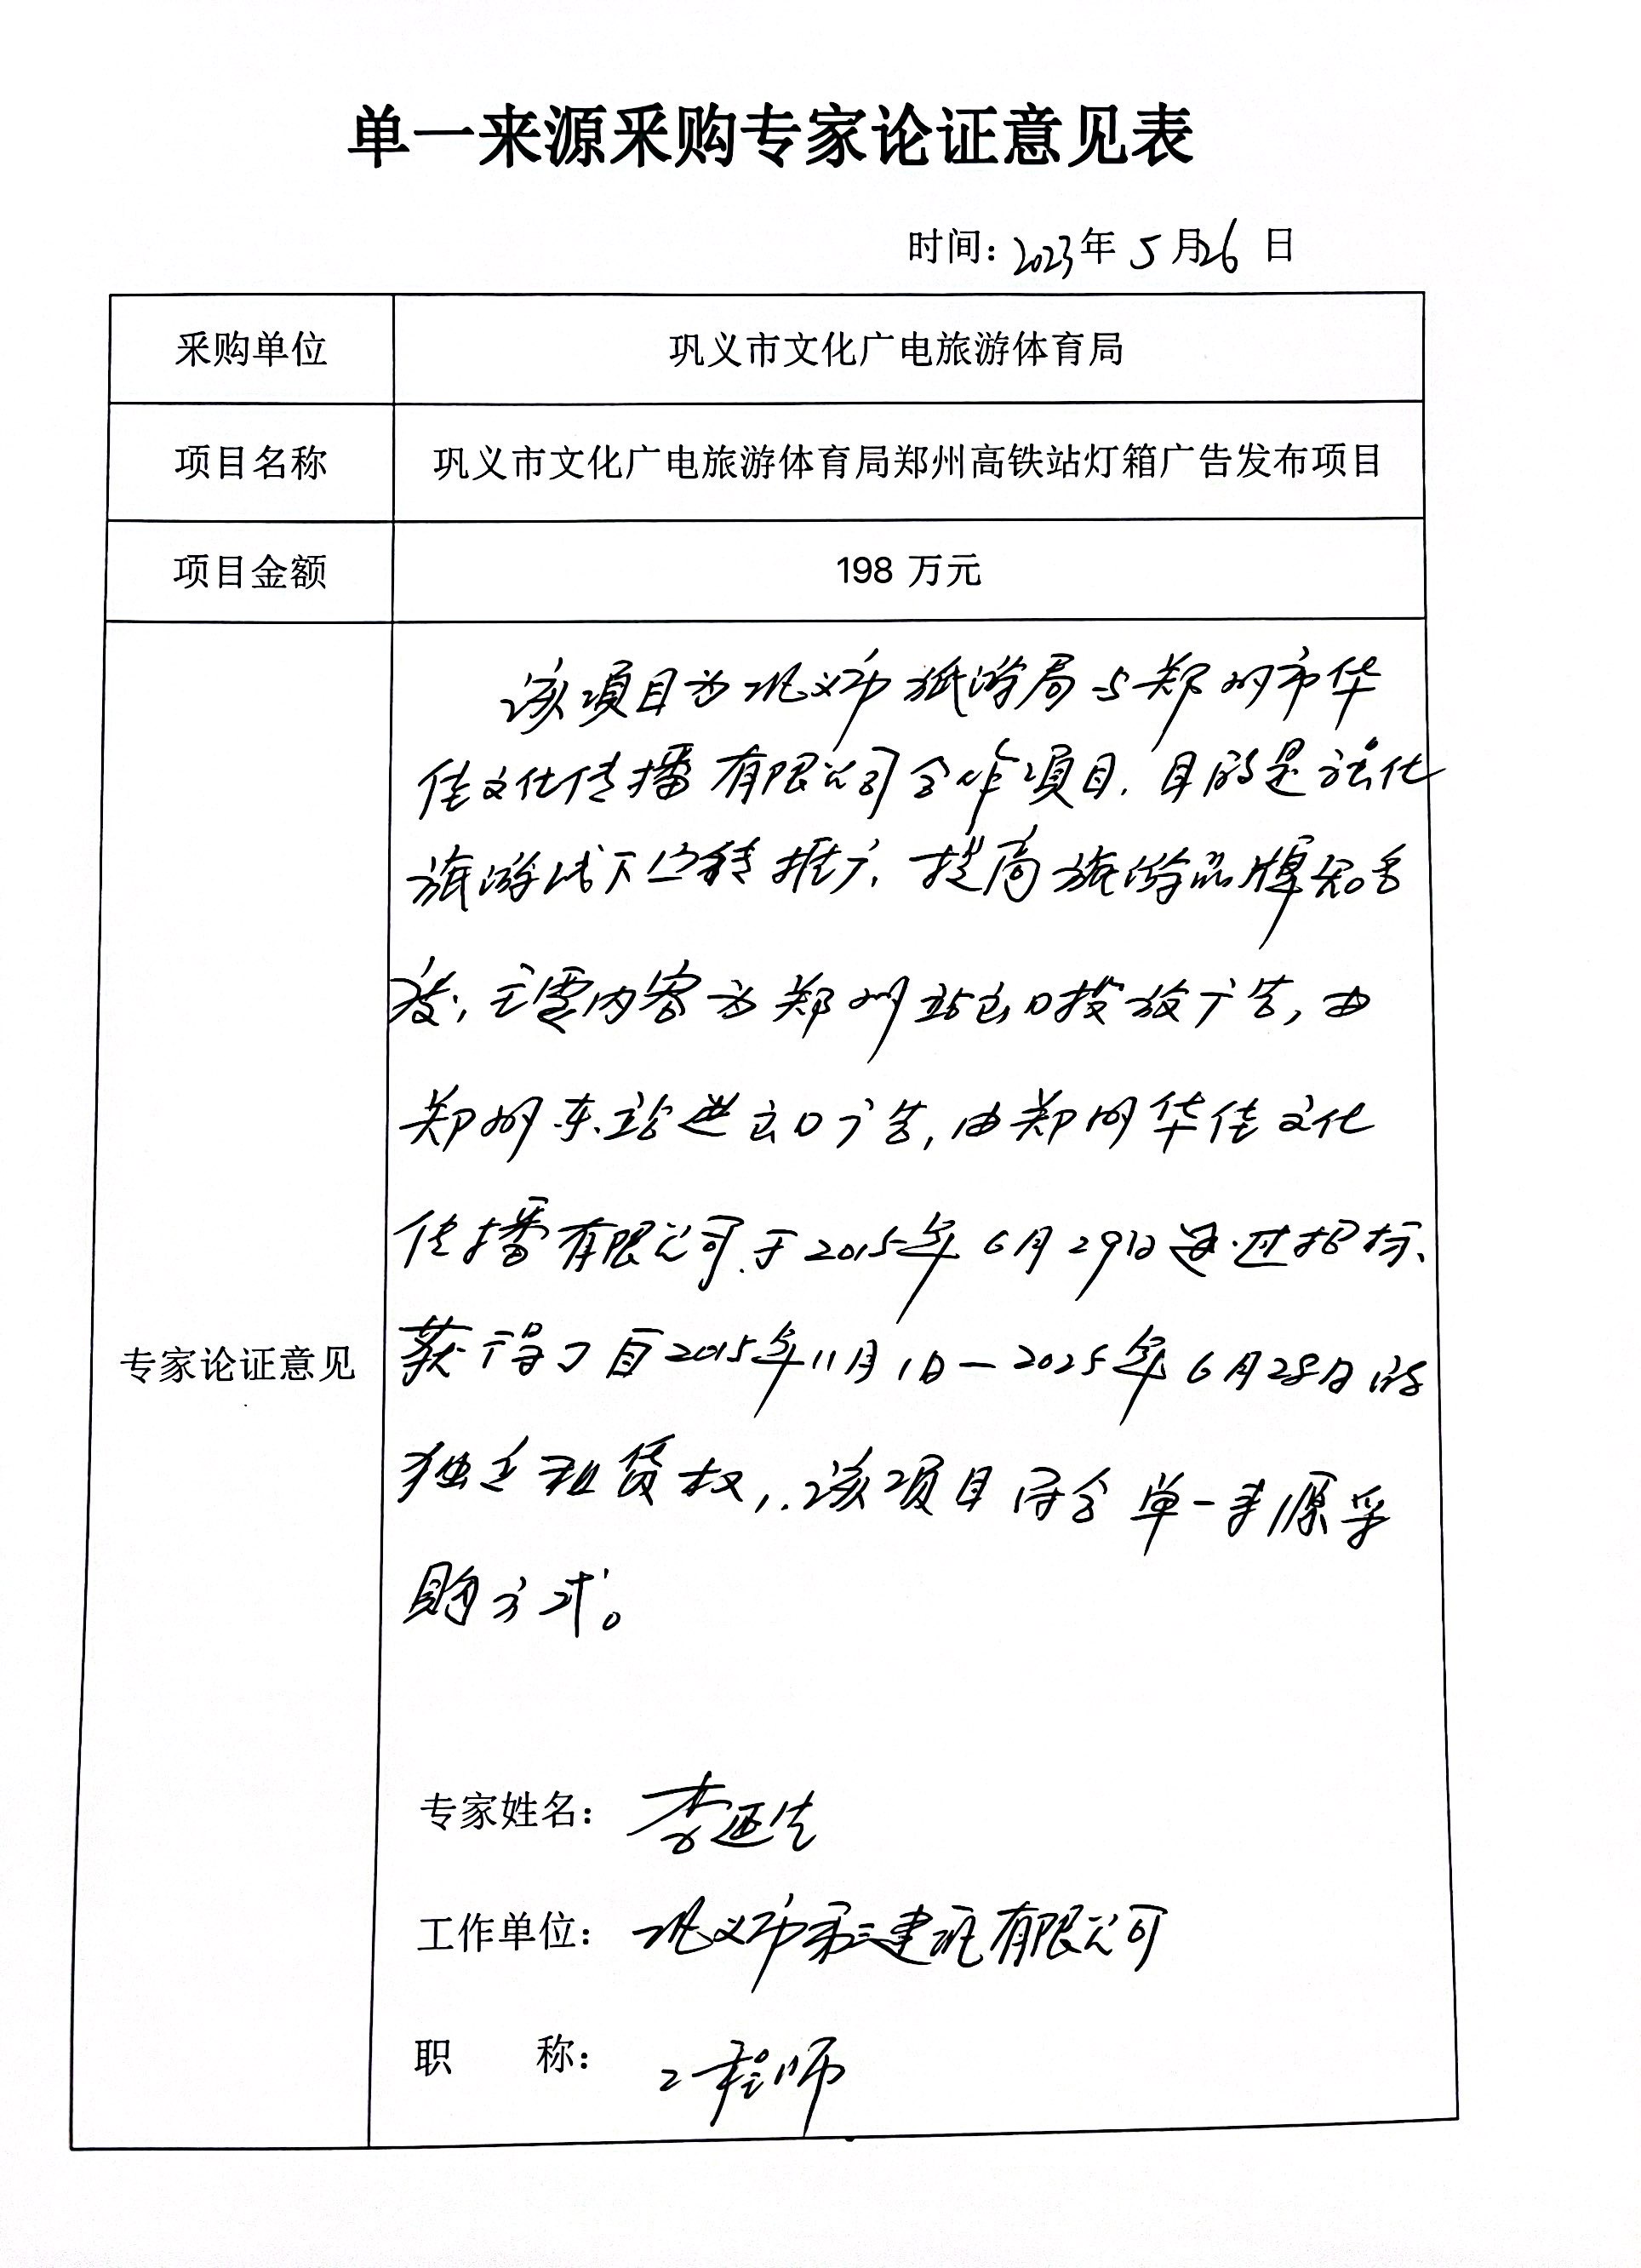 单一来源采购专家论证意见表
时间：2023年5月26日
采购单位
巩义市文化广电旅游体育局
项目名称
巩义市文化广电旅游体育局郑州高铁站灯箱广告发布项目
项目金额
198 万元
专家论证意见
该项目为巩义市旅游局与郑州市华
佳文化传播有限公司合作项目，目的是强化
旅游线下宣传推广，提高旅游品牌知名
度，主要内容为郑州站出口投放广告，由
郑州东站进出口广告，由郑州华佳文化
传播有限公司于2015年6月29日通过招标、
获得了自2015年11月1日—2025年6月28日的
独立租赁权，该项目符合单一来源采
购方式。
专家姓名：李延生
工作单位：巩义市第三建筑有限公司
职 称：工程师